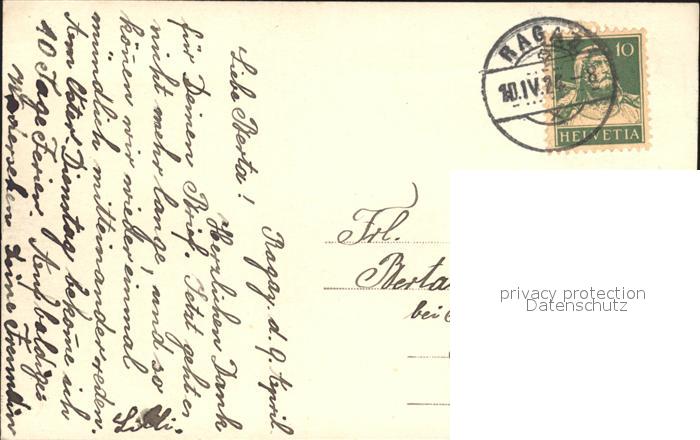 Ragaz. d. 9. April.
Liebe Berta!
Herzlichen Dank
für Deinen Brief. Jetzt geht es
nicht mehr lange, und so
könen wir wieder einmal
mündlich mitteinander reden.
Am Oster Dienstag bekome ich
10 Tage Ferien. Auf baldiges
Wiedersehen Deine Freundin
Lilli.
RAGAZ
10.IV.2
8
10
HELVETIA
Frl.
Berta
bei
privacy protection
Datenschutz